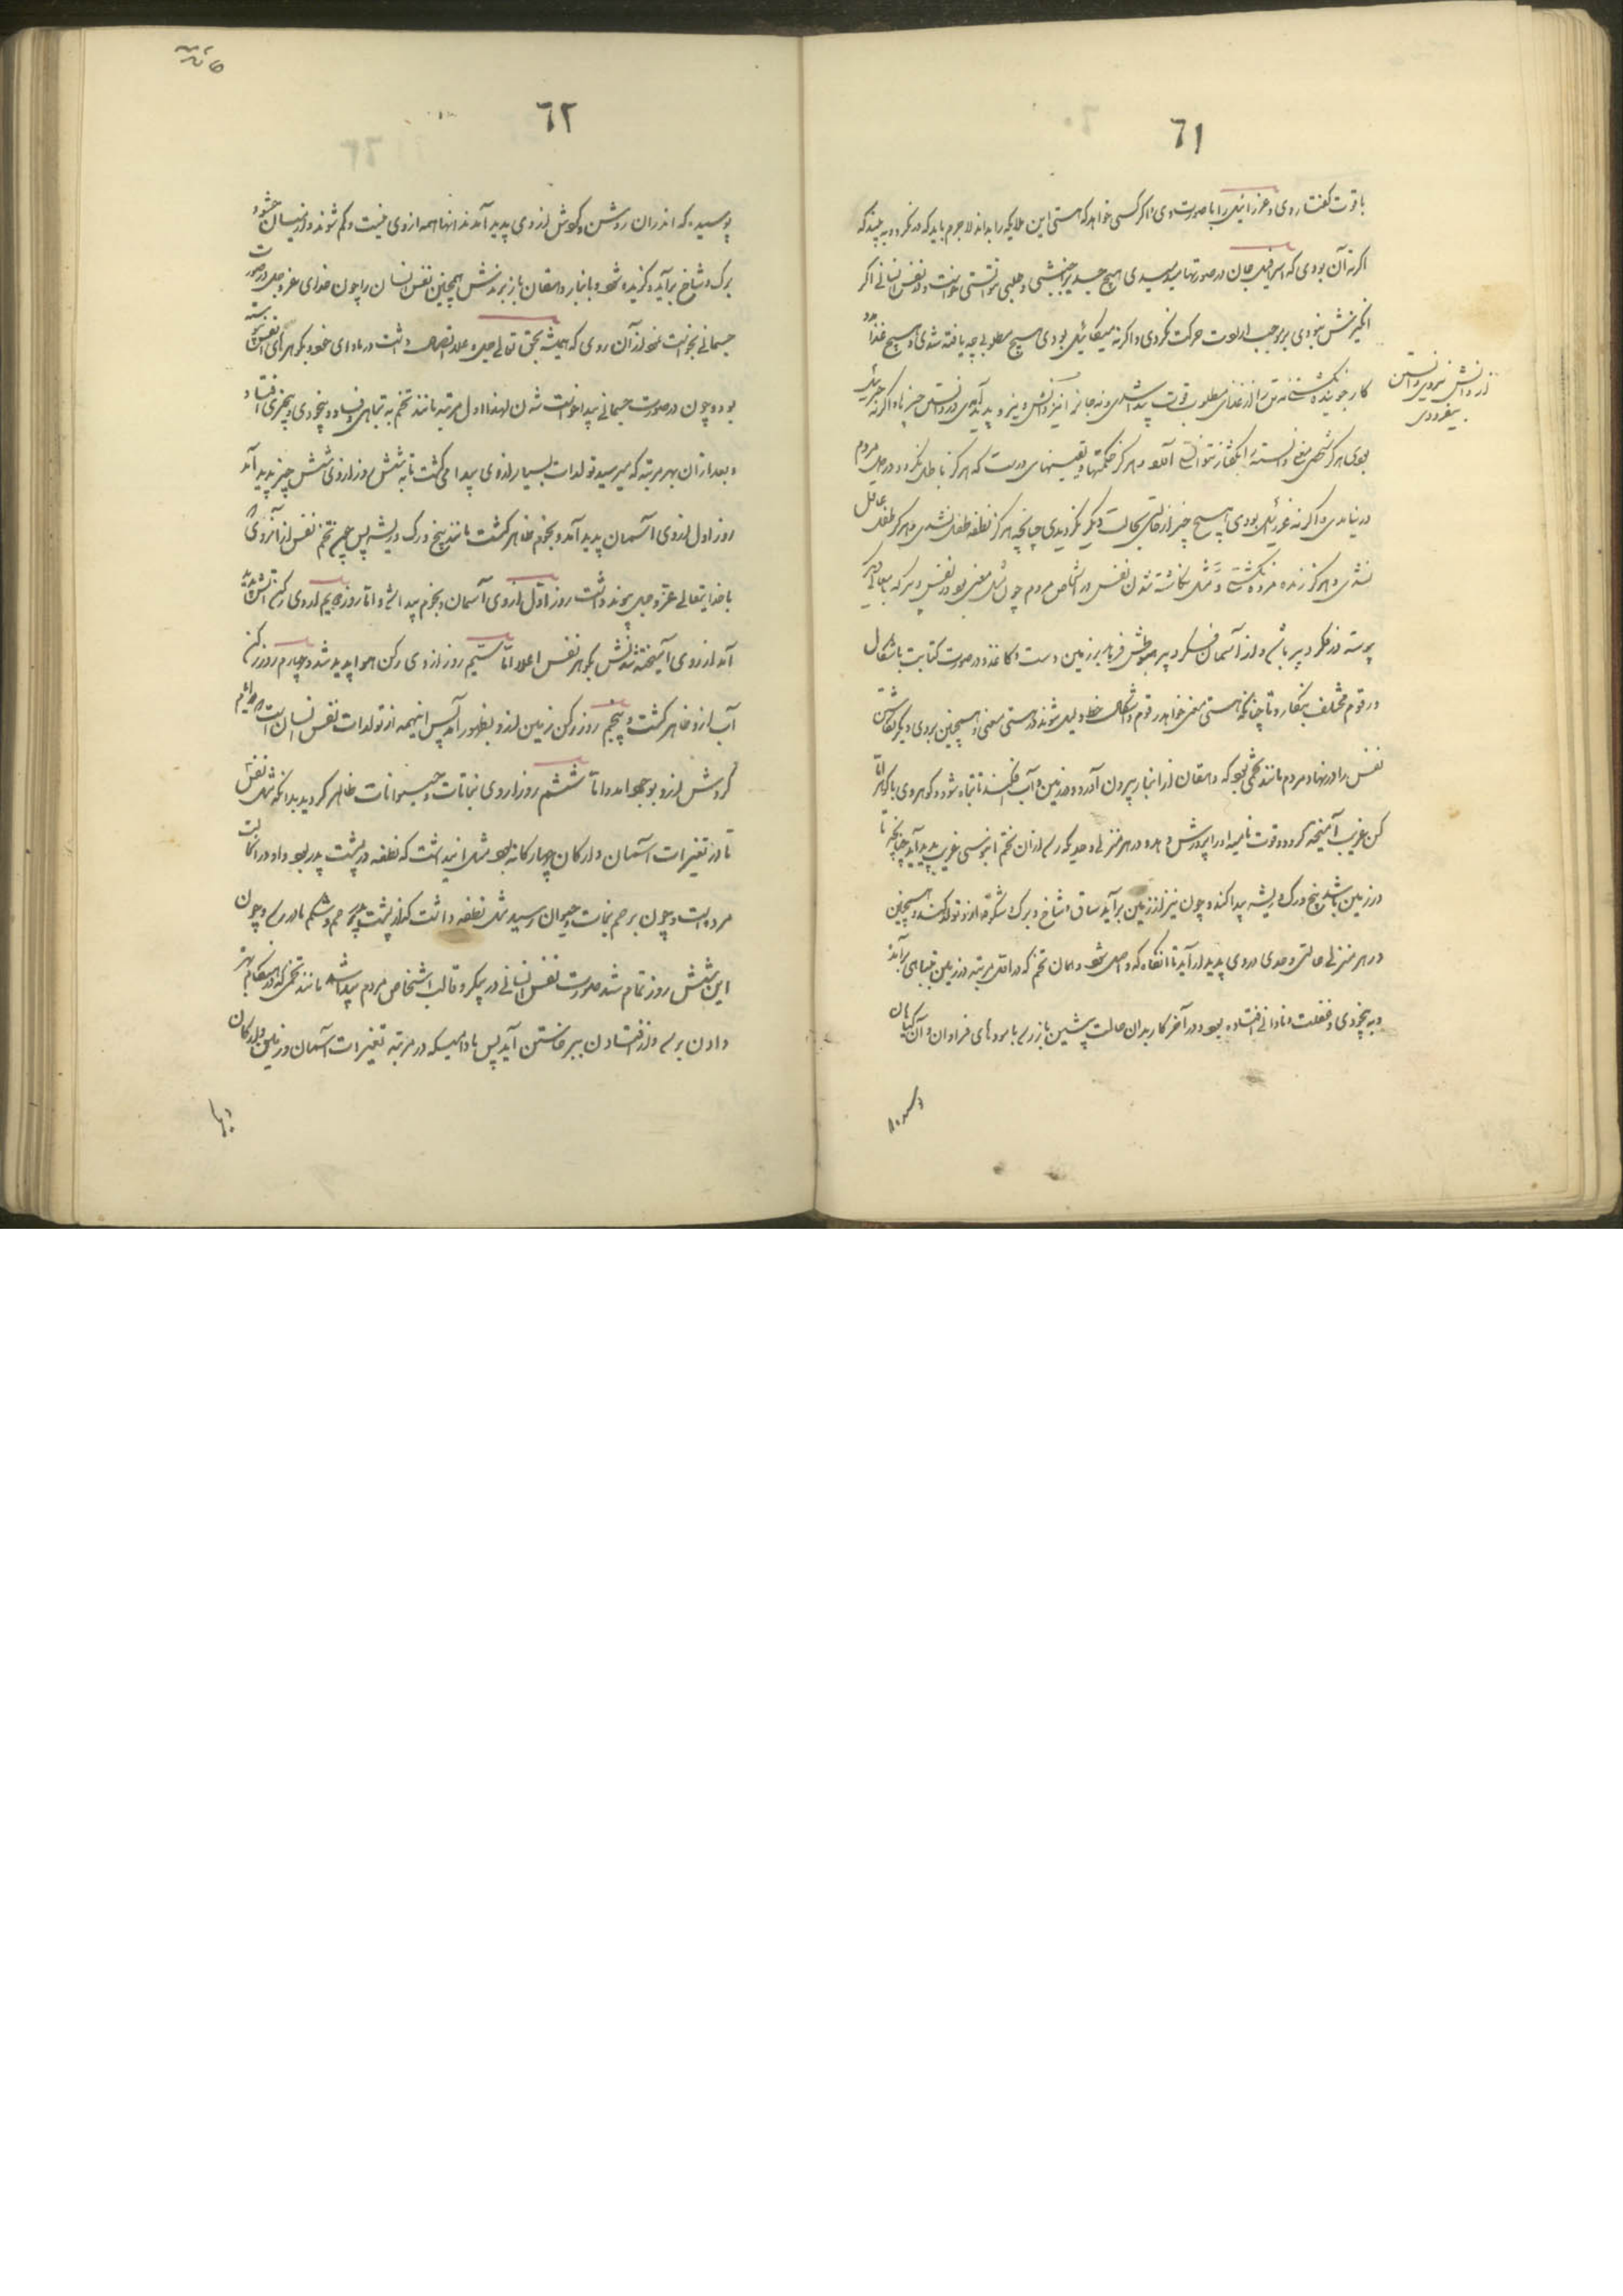 ٦١
با قوت گفتار وی و عزرائیل را با صورت وی و اگر کسی خواهد که هستی این ملایکه را بداند لاجرم باید که درنگرد و به بیند که
اگر نه آن بودی که اسرافیل جان در صورتها میدمیدی هیچ جسد بر جنبشی و طلبی نتوانستی و در نفس انسانی اگر
انگیزش نبودی بر موجب ارادت حرکت نکردی و اگر نه میکائیل بودی هیچ مطلوبی چه یافته نشدی و هیچ غذا
کار جوینده نگشتی نه تن را از غذای مطلوب قوت پیدا شدی و نه جانرا نیز و اگر نه جبرئیل
بودی هرگز شخص معنی دانسته را بگفتار نتوانستی آورد و هرگز حکمتها و یقینهای درست که هرگز باطل نگردد در دل مردم
در نیامدی و اگر نه عزرائیل بودی هیچ چیز از حالتی بحالت دیگر نگردیدی چنانچه هرگز نطفه طفل نشدی و هرگز طفل عاقل
نشدی و هرگز زنده مرده نگشتی و مثل نگاشته شدن نفس در اشخاص مردم چون مثل معنی بود در نفس دبیر که
پیوسته در فکر دبیر باشد و از آسمان فکر دبیر فرو آید بر زمین دست و کاغذ و در صورت کتابت باشکال
و رقوم مختلف بنگارد تا چنانکه هستی معنی خواهد رقوم و اشکال خط دلیل شوند بر هستی معنی و همچنین بروی دیگر
نفس را در نهاد مردم مانند تخمی بود که دهقان از انبار بیرون آورد و در زمین و آب افکند تا تباه شود و گوهر وی با گوهر
کن غریب آمیخته گردد و قوت نامیه او را پرورش دهد و در هر منزلی و حدی که رسد از آن تخم غریب پدید آید چنانچه تا
در زمین باشد بیخ و رگ و ریشه پیدا کند و چون نیز از زمین برآید ساق و شاخ و برگ و شکوفه از او تولد کنند و همچنین
در هر منزلی حالتی و حدی در وی پدیدار آید تا آنگاه که و اصل شود و همان تخم که در اول مرتبه در زمین بتباهی برآمد
و به بیخردی و غفلت و نادانی افتاده بود در آخر کار بدان حالت پیشین باز رسد با سودهای فراوان و آن گیاهان
از دانش نیرو
بیفزودی
٦٢
پوسیده که اندران روش و کوشش از وی پدید آمدند انها همه از وی نیست و گم شوند و از میان
برگ و شاخ برآید و گزیده شود و بانبار دهقان باز برندش همچنین نفس انسان را چون خدای عز و جل در صورت
جسمانی بخواست نمود از آن روی که همیشه بحق تعالی جل و علا اتصال داشت در ماوای خود و بگوهرهای نفس
بود و چون در صورت جسمانی پیدا خواست شدن لهذا اول مرتبه مانند تخم به تباهی و فساد و بیخودی و بیخبری افتاد
و بعد از آن بهر مرتبه که میرسید تولدات بسیار از وی پیدا می گشت تا به شش روز از وی شش چیز پدید آمد
روز اول از وی آسمان پدید آمد و نجوم ظاهر گشت مانند بیخ و رگ و ریشه پس چون تخم نفس از آنروی که
با خدایتعالی عز و جل پیوند داشت روز اول از وی آسمان و نجوم پیدا شد و اما روز دویم از وی رکن آتش
آمد از روی آمیخته شدنش بگوهر نفس اعلا و اما سیم روز از وی رکن هوا پدید شد و چهارم روز رکن
آب از و ظاهر گشت و پنجم روز رکن زمین از و بظهور آمد پس اینهمه از تولدات نفس انسان است
گردش از و بوجود آمد و اما ششم روز از وی نباتات و حیوانات ظاهر گردید بدانکه مثل نفس
تا در تغیرات آسمان و ارکان چهارگانه بود مثل اینداشت که نطفه در پشت پدر بود و او در آن حالت
مرده است و چون بر حم نبات و حیوان رسید مثل نطفه داشت که از پشت پدر بر حم و شکم مادر رسد و چون
این شش روز تمام شد صورت نفس انسانی در پیکر و قالب اشخاص مردم پیدا شد مانند تخمی که در هنگام بهر
دادن برسد و از افتادن ببرخاستن آید پس مادامیکه در مرتبه تغیرات آسمان و زمین و ارکان